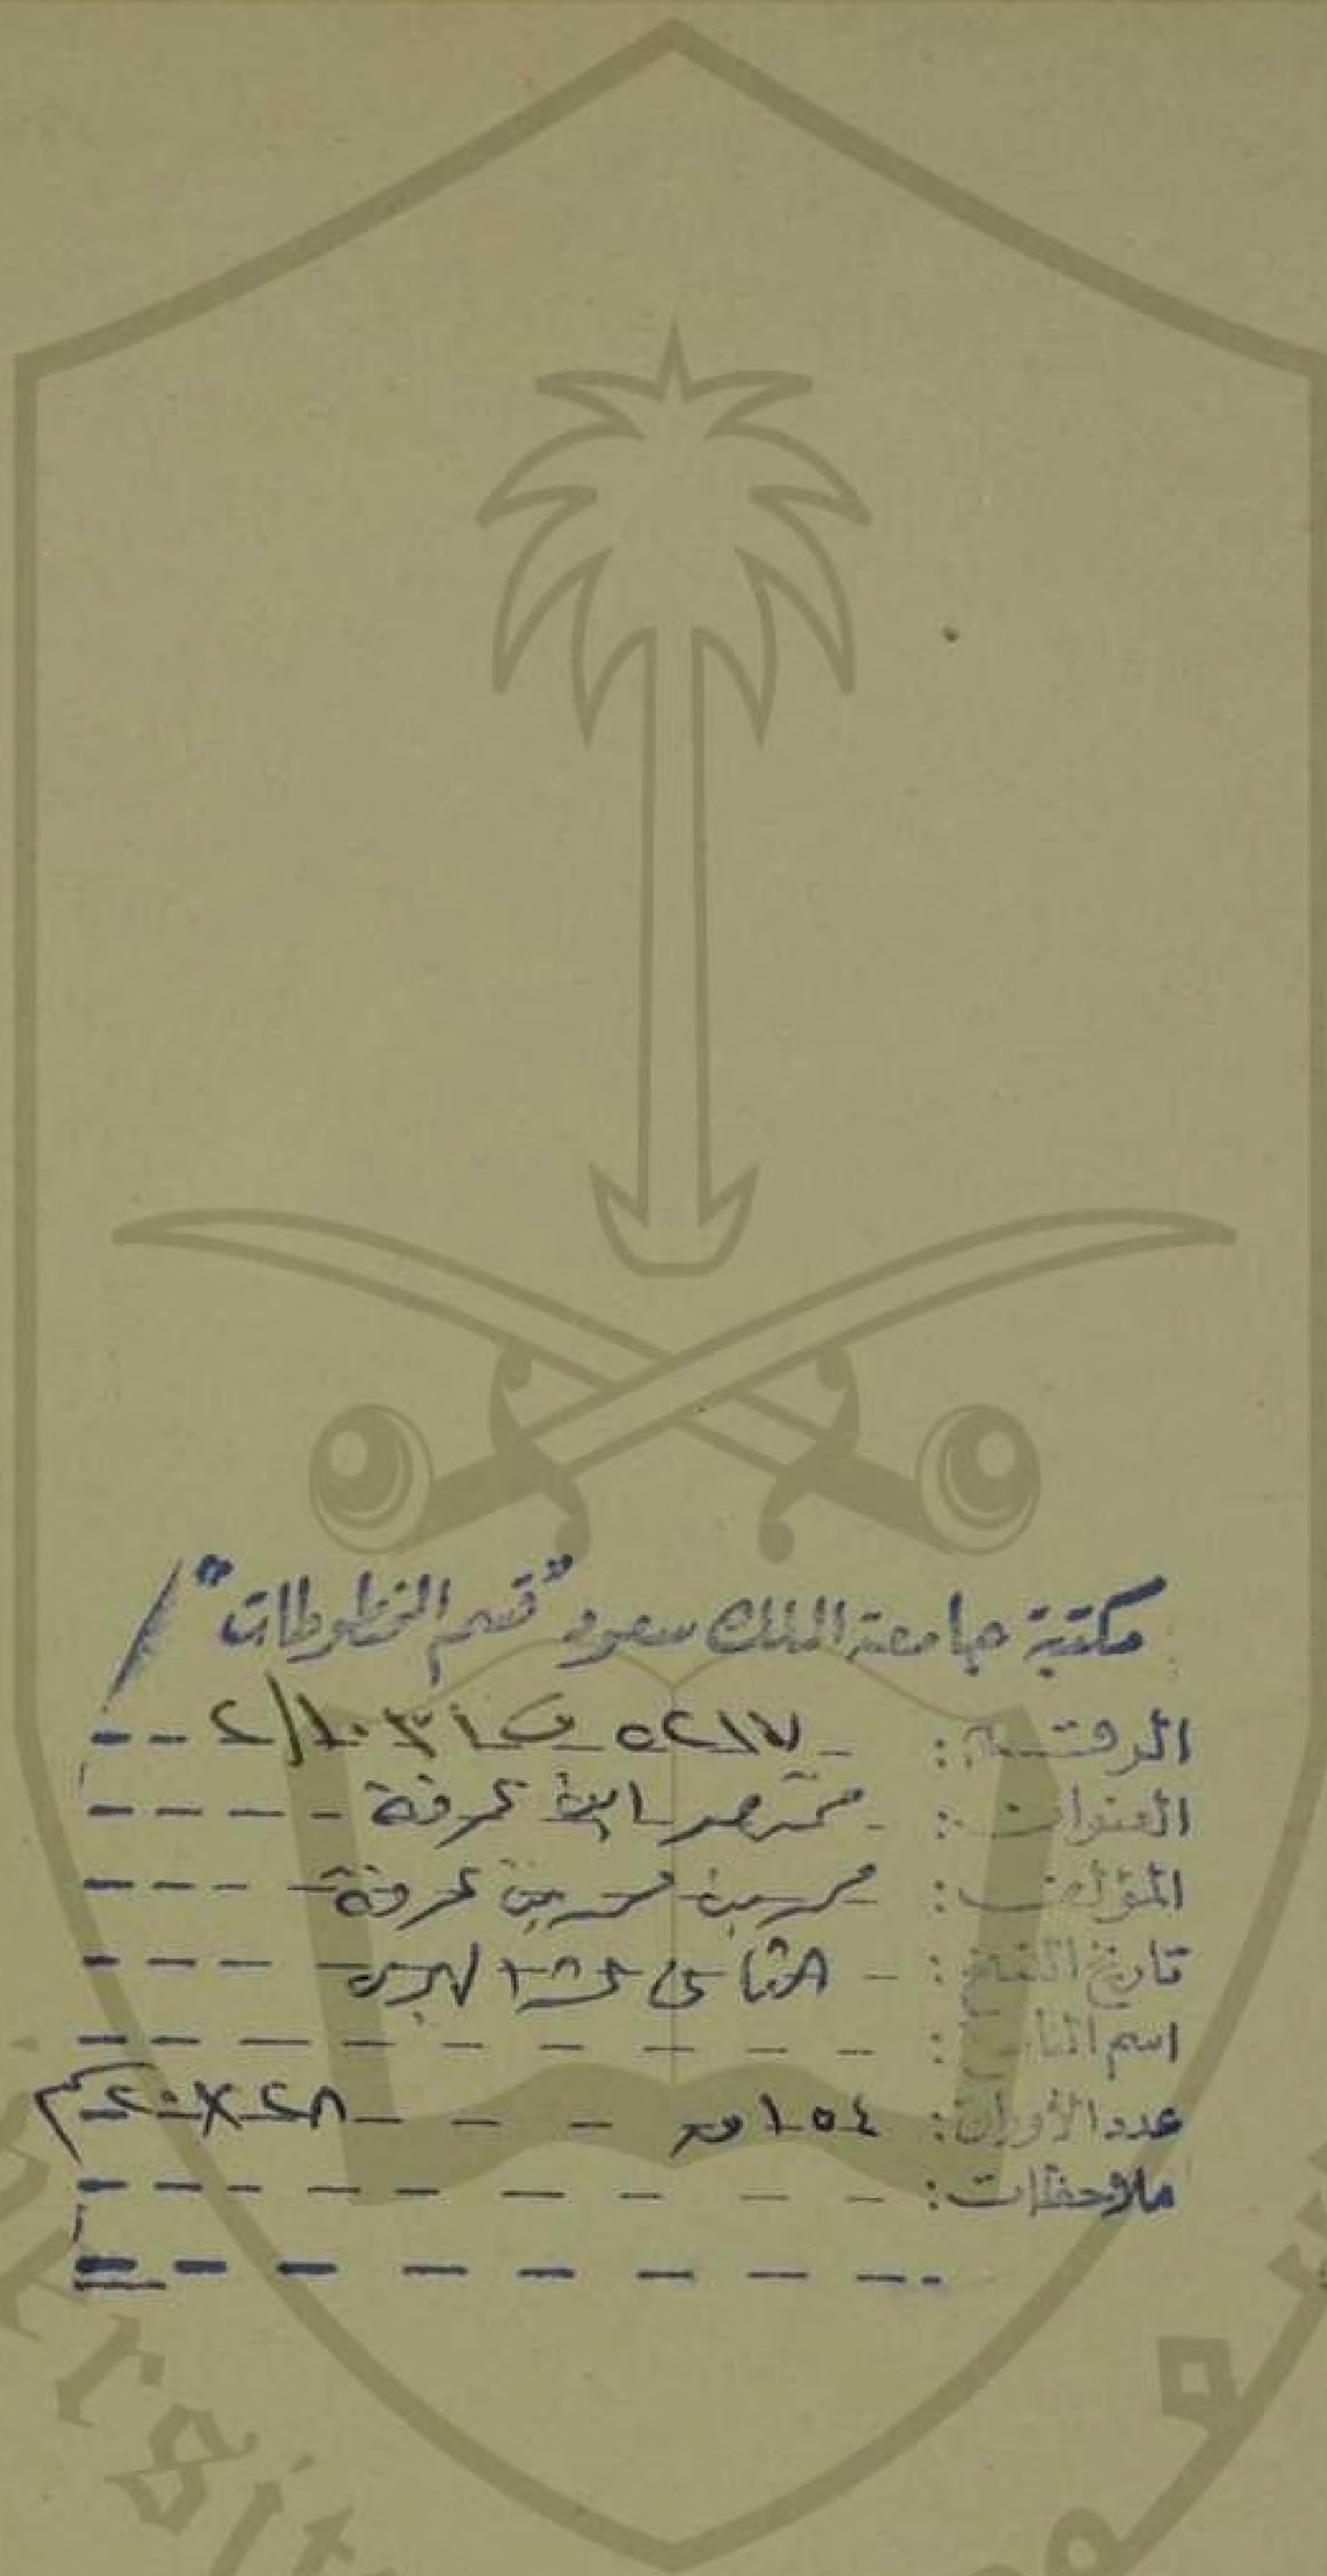 مكتبة جامعة الملك سعود "قسم المخطوطات"
الرقم: ٥٢١٧ ف ١٠٣١/٢
العنوان: مختصر ابن عرفة
المؤلف: محمد بن محمد بن عرفة
تاريخ النسخ: الثاني عشر الهجري
اسم الناسخ:
عدد الأوراق: ١٥٤ ٢٨×٢٠
ملاحظات: